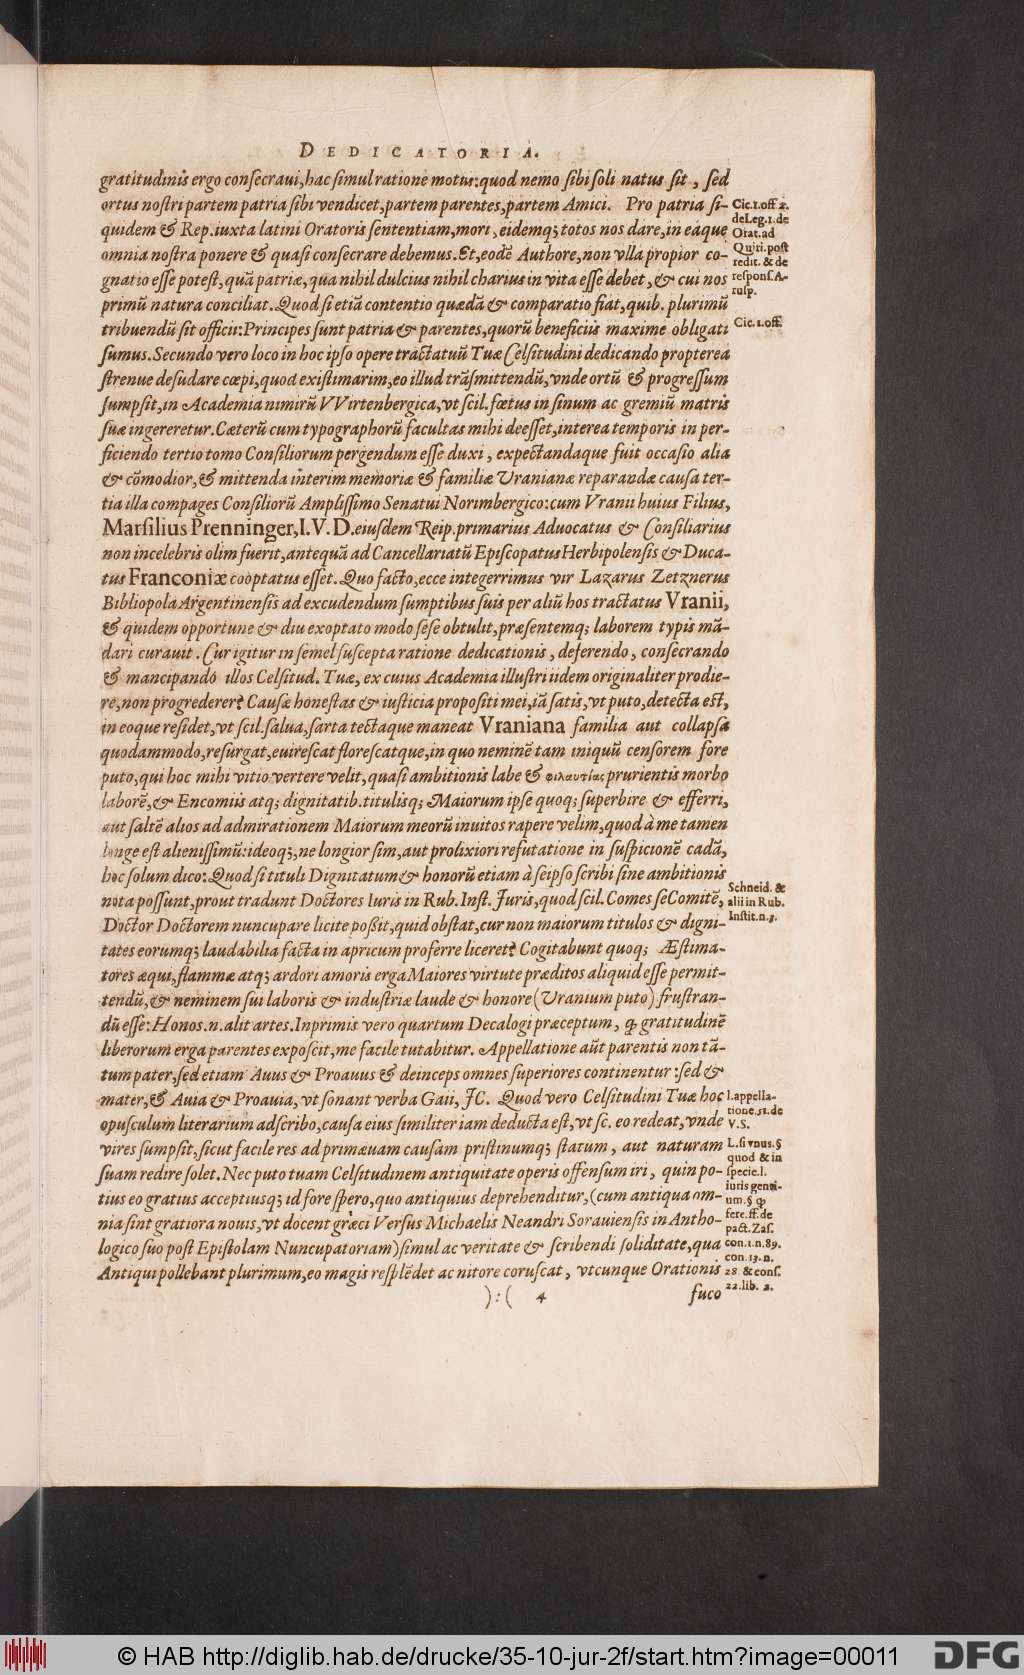 DEDICATORIA.
gratitudinis ergo consecraui, hac simul ratione motus: quod nemo sibi soli natus sit, sed
ortus nostri partem patria sibi vendicet, partem parentes, partem Amici. Pro patria si-
quidem & Rep. iuxta latini Oratoris sententiam, mori, eidemq; totos nos dare, in eaque
omnia nostra ponere & quasi consecrare debemus. Et, eodē Authore, non vlla propior co-
gnatio esse potest, quā patriæ, qua nihil dulcius nihil charius in vita esse debet, & cui nos
primū natura conciliat. Quod si etiā contentio quædā & comparatio fiat, quib. plurimū
tribuendū sit officii: Principes sunt patria & parentes, quorū beneficiis maxime obligati
sumus. Secundo vero loco in hoc ipso opere tractatuū Tuæ Celsitudini dedicando propterea
strenue desudare cœpi, quod existimarim, eo illud trāsmittendū, vnde ortū & progressum
sumpsit, in Academia nimirū VVirtenbergica, vt scil. fœtus in sinum ac gremiū matris
suæ ingereretur. Cæterū cum typographorū facultas mihi deesset, interea temporis in per-
ficiendo tertio tomo Consiliorum pergendum esse duxi, expectandaque fuit occasio alia
& cōmodior, & mittenda interim memoriæ & familiæ Vranianæ reparandæ causa ter-
tia illa compages Consiliorū Amplissimo Senatui Norimbergico: cum Vranii huius Filius,
Marsilius Prenninger, I. V. D. eiusdem Reip. primarius Aduocatus & Consiliarius
non incelebris olim fuerit, antequā ad Cancellariatū Episcopatus Herbipolensis & Duca-
tus Franconiæ cooptatus esset. Quo facto, ecce integerrimus vir Lazarus Zetznerus
Bibliopola Argentinensis ad excudendum sumptibus suis per aliū hos tractatus Vranii,
& quidem opportune & diu exoptato modo sese obtulit, præsentemq; laborem typis mā-
dari curauit. Cur igitur in semel suscepta ratione dedicationis, deferendo, consecrando
& mancipando illos Celsitud. Tuæ, ex cuius Academia illustri iidem originaliter prodie-
re, non progrederer? Causæ honestas & iusticia propositi mei, iā satis, vt puto, detecta est,
in eoque residet, vt scil. salua, sarta tectaque maneat Vraniana familia aut collapsa
quodammodo, resurgat, euirescat florescatque, in quo neminē tam iniquū censorem fore
puto, qui hoc mihi vitio vertere velit, quasi ambitionis labe & φιλαυτίας prurientis morbo
laborē, & Encomiis atq; dignitatib. titulisq; Maiorum ipse quoq; superbire & efferri,
aut saltē alios ad admirationem Maiorum meorū inuitos rapere velim, quod à me tamen
longe est alienissimū: ideoq;, ne longior sim, aut prolixiori refutatione in suspicionē cadā,
hoc solum dico: Quod si tituli Dignitatum & honorū etiam à seipso scribi sine ambitionis
nota possunt, prout tradunt Doctores Iuris in Rub. Inst. Juris, quod scil. Comes se Comitē,
Doctor Doctorem nuncupare licite possit, quid obstat, cur non maiorum titulos & digni-
tates eorumq; laudabilia facta in apricum proferre liceret? Cogitabunt quoq; Æstima-
tores æqui, flammæ atq; ardori amoris erga Maiores virtute præditos aliquid esse permit-
tendū, & neminem sui laboris & industriæ laude & honore (Vranium puto) frustran-
dū esse: Honos .n. alit artes. Inprimis vero quartum Decalogi præceptum, ꝙ gratitudinē
liberorum erga parentes exposcit, me facile tutabitur. Appellatione aūt parentis non tā-
tum pater, sed etiam Auus & Proauus & deinceps omnes superiores continentur: sed &
mater, & Auia & Proauia, vt sonant verba Gaii, JC. Quod vero Celsitudini Tuæ hoc
opusculum literarium adscribo, causa eius similiter iam deducta est, vt sc. eo redeat, vnde
vires sumpsit, sicut facile res ad primæuam causam pristinumq; statum, aut naturam
suam redire solet. Nec puto tuam Celsitudinem antiquitate operis offensum iri, quin po-
tius eo gratius acceptiusq; id fore spero, quo antiquius deprehenditur, (cum antiqua om-
nia sint gratiora nouis, vt docent græci Versus Michaelis Neandri Sorauiensis in Antho-
logico suo post Epistolam Nuncupatoriam) simul ac veritate & scribendi soliditate, qua
Antiqui pollebant plurimum, eo magis resplēdet ac nitore coruscat, vtcunque Orationis
):( 4 fuco
Cic. 1. off. 2.
de Leg. 1. de
Orat. ad
Quiri. post
redit. & de
respons. A-
rusp.
Cic. 1. off.
Schneid. &
alii in Rub.
Instit. n. 3.
l. appella-
tione. 51. de
V. S.
L. si vnus. §
quod & in
specie. l.
iuris genti-
um. § ꝙ
fere. ff. de
pact. Zas.
con. 1. n. 89.
con. 13. n.
28. & cons.
22. lib. 2.
© HAB http://diglib.hab.de/drucke/35-10-jur-2f/start.htm?image=00011
DFG